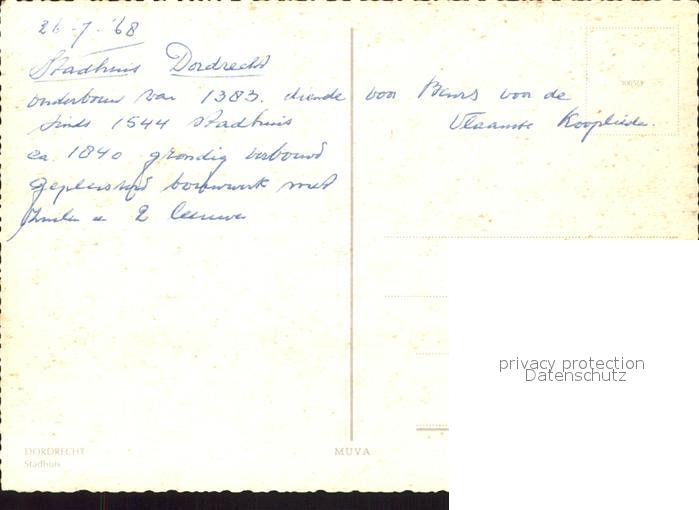 26-7-'68
Stadhuis Dordrecht
onderbouw van 1383. diende voor Beurs voor de
Vlaamse Kooplieden.
sinds 1544 stadhuis
ca. 1840 grondig verbouwd
gepleisterd bouwwerk met
zuilen en 2 leeuwen
DORDRECHT
Stadhuis
MUVA
privacy protection
Datenschutz